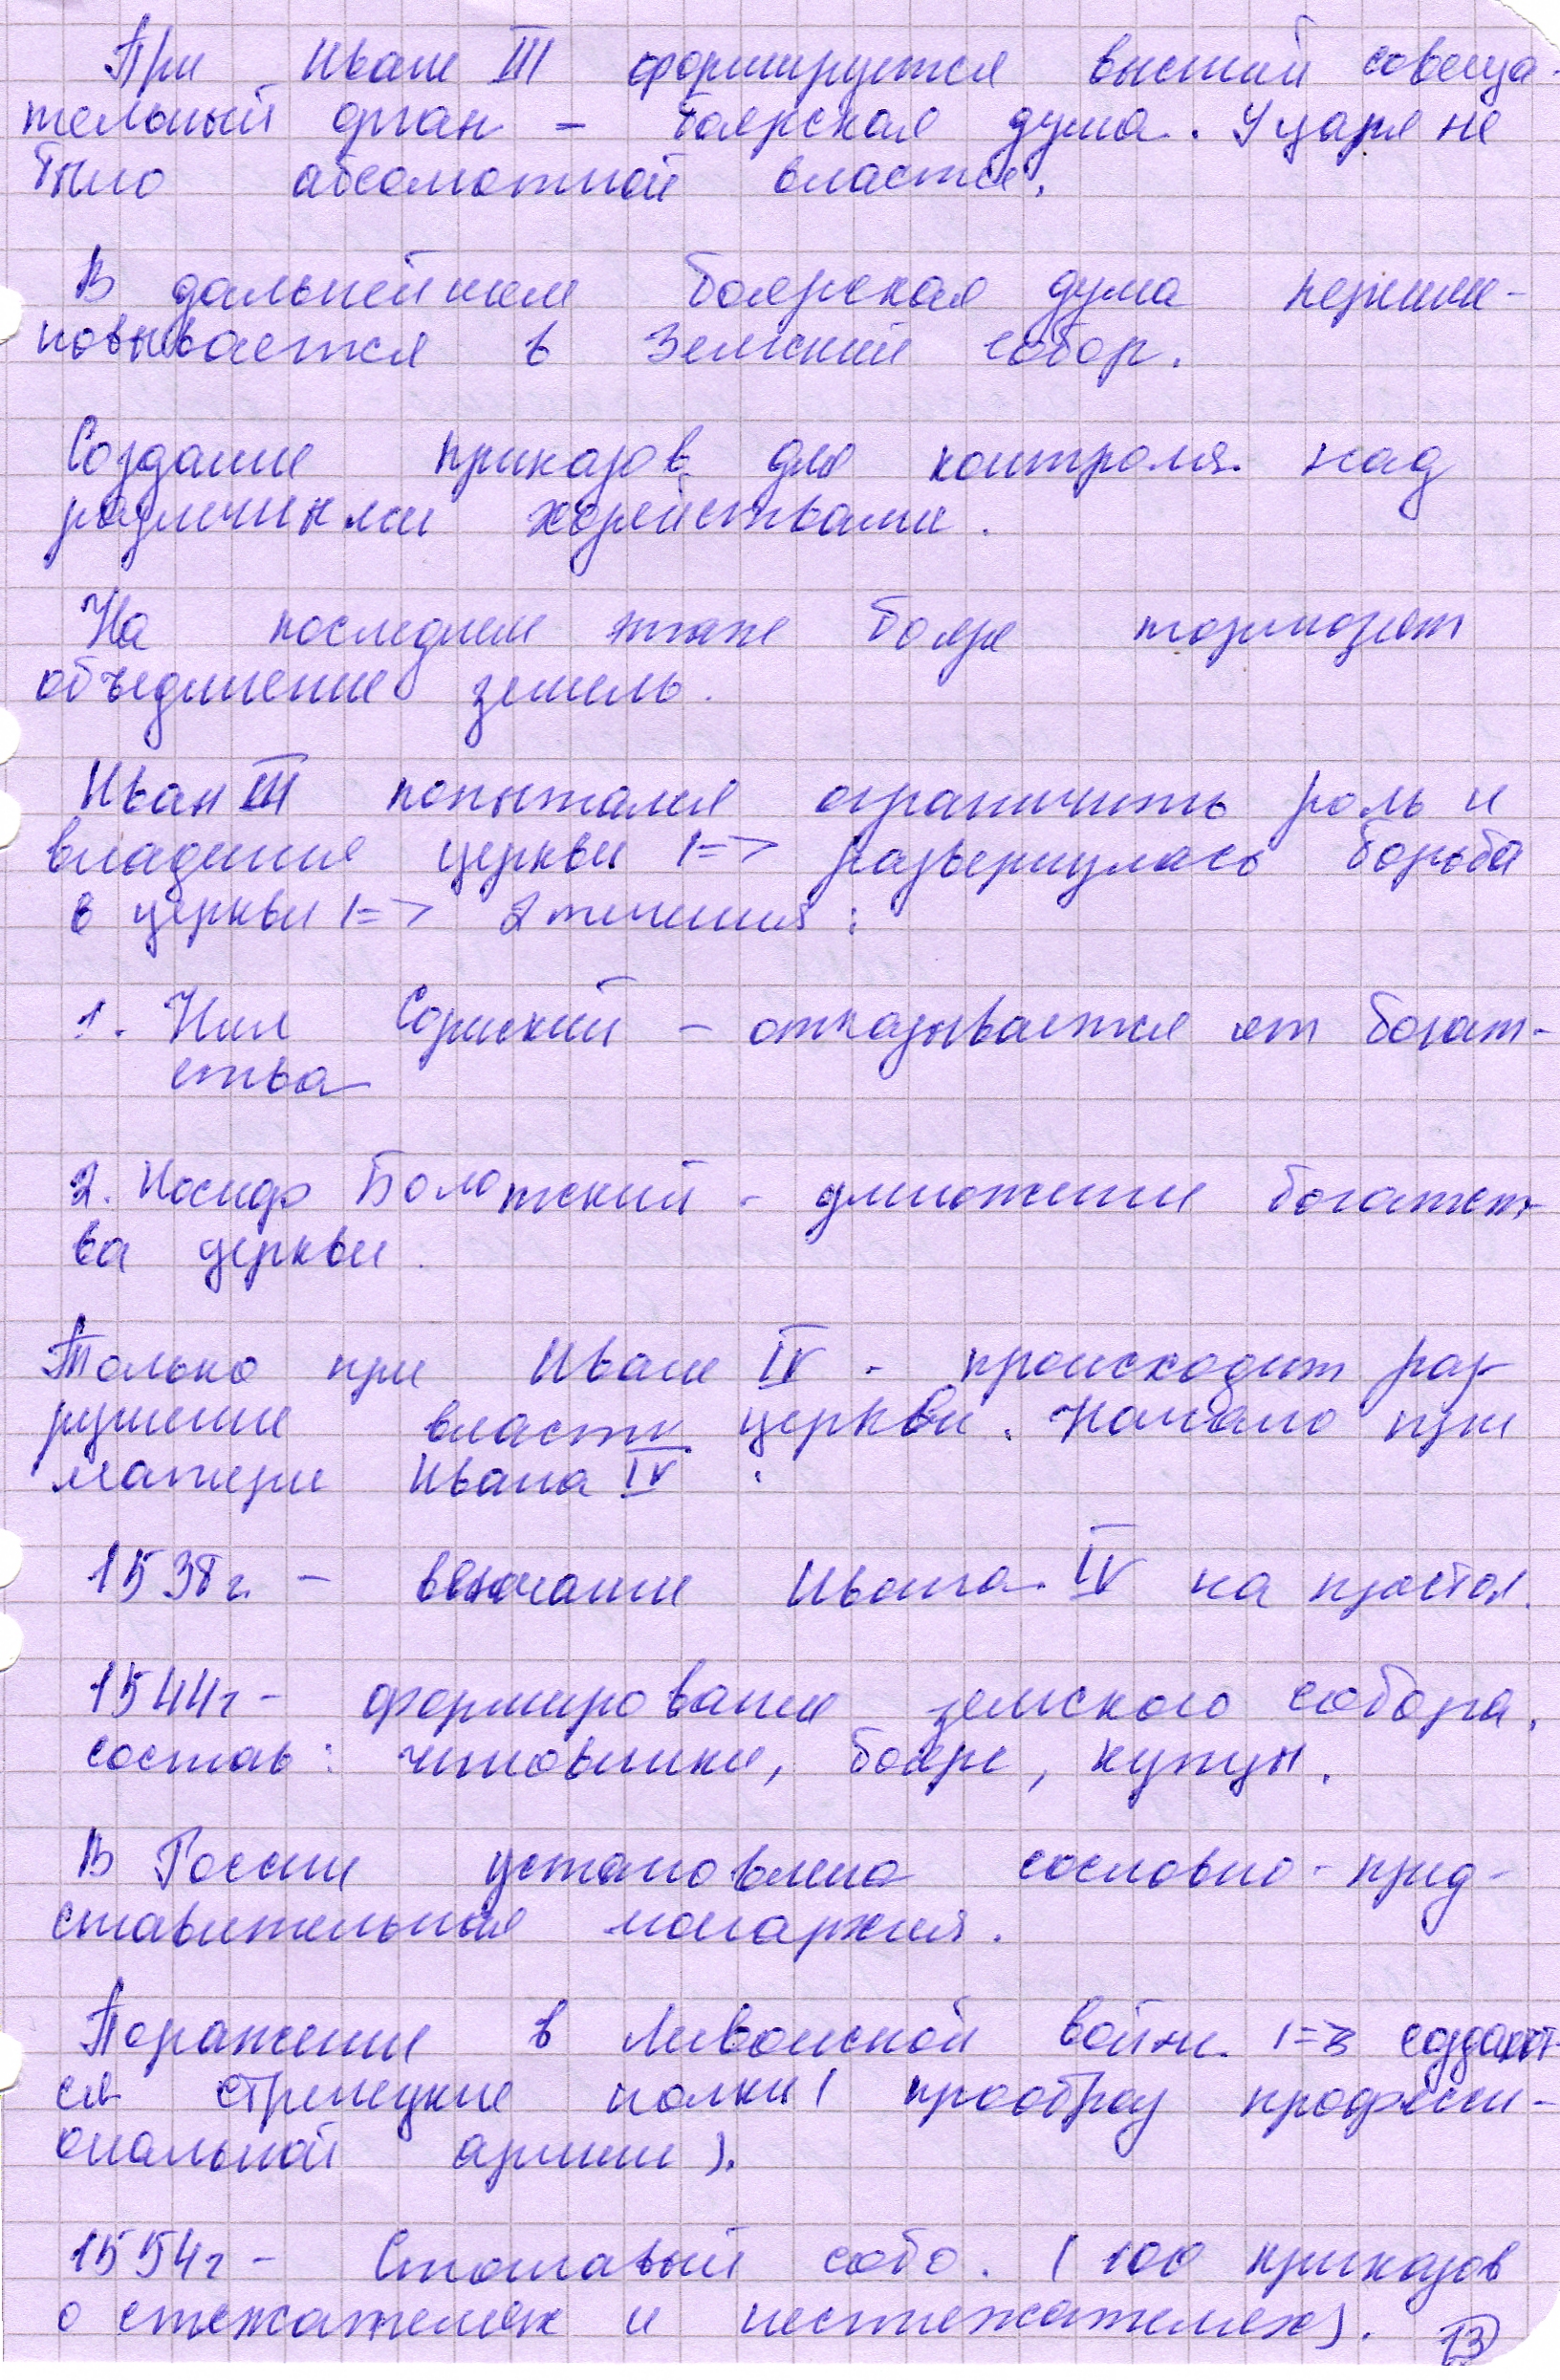 При Иване III формируется высший совеща-
тельный орган - боярская дума. У царя не
было абсолютной власти.
В дальнейшем боярская дума переиме-
новывается в Земский собор.
Создание приказов для контроля над
различными хозяйствами.
На последнем этапе бояре тормозят
объединение земель.
Иван III попытался ограничить роль и
владения церкви |=> развернулась борьба
в церкви |=> 2 течения:
1. Нил Сорский - отказывается от богат-
ства
2. Иосиф Болотский - умножение богатст-
ва церкви.
Только при Иване IV - происходит раз
рушение власти церкви. Начало при
матери Ивана IV.
1538г. - венчание Ивана IV на престол.
1544г - формирование земского собора.
состав: чиновники, бояре, купцы.
В России установлена сословно-пред-
ставительная монархия.
Поражение в Ливонской войне |=> создают-
ся стрелецкие полки (прообраз професси-
ональной армии).
1554г - Стоглавый собо. (100 приказов
о стяжателях и нестяжателях).
13